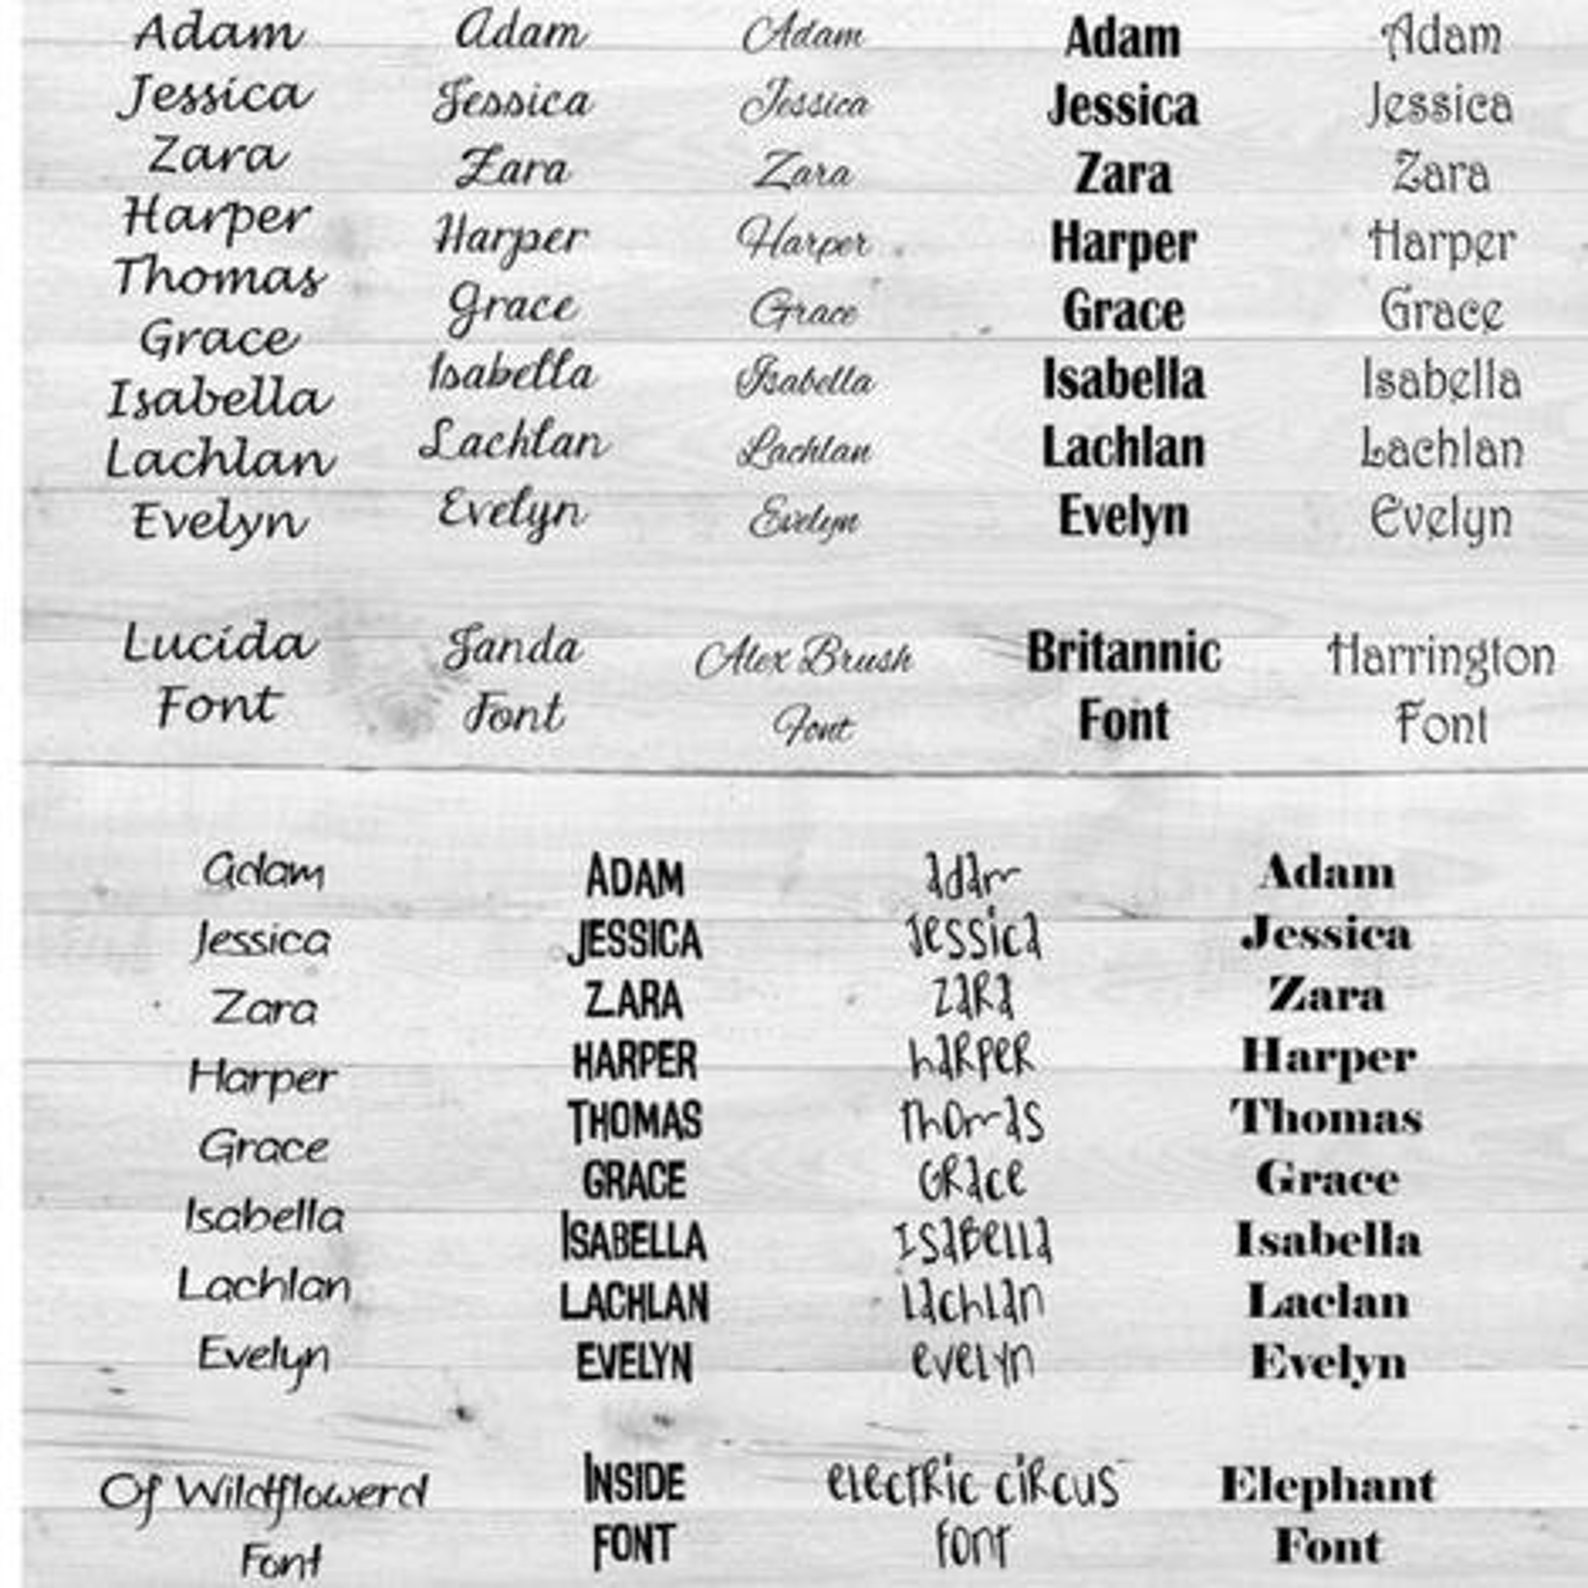 Adam
Jessica
Zara
Harper
Thomas
Grace
Isabella
Lachlan
Evelyn
Lucida
Font
Adam
Jessica
Zara
Harper
Grace
Isabella
Lachlan
Evelyn
Janda
Font
Adam
Jessica
Zara
Harper
Grace
Isabella
Lachlan
Evelyn
Alex Brush
Font
Adam
Jessica
Zara
Harper
Grace
Isabella
Lachlan
Evelyn
Britannic
Font
Adam
Jessica
Zara
Harper
Grace
Isabella
Lachlan
Evelyn
Harrington
Font
Adam
Jessica
Zara
Harper
Grace
Isabella
Lachlan
Evelyn
Of Wildflowerd
Font
ADAM
JESSICA
ZARA
HARPER
THOMAS
GRACE
ISABELLA
LACHLAN
EVELYN
INSIDE
FONT
adam
Jessica
zaRa
haRpeR
Thomas
GRace
IsaBella
lachlan
evelyn
electRic ciRcus
font
Adam
Jessica
Zara
Harper
Thomas
Grace
Isabella
Laclan
Evelyn
Elephant
Font